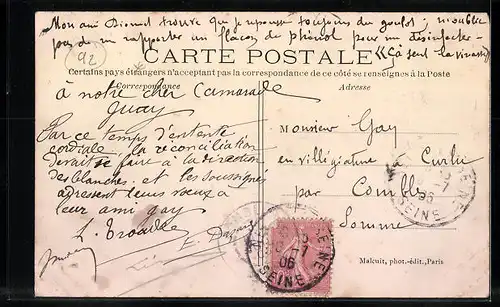 Mon ami Bionnet trouve que je repousse toujours du goulot; n'oublie
pas de me rapporter un flacon de phénol pour me désinfecter
92
"Ça sent la vinasse"
CARTE POSTALE
Certains pays étrangers n'acceptant pas la correspondance de ce côté se renseigner à la Poste
Correspondance
Adresse
à notre cher Camarade
Guay
Par ce temps d'entente
cordiale la réconciliation
devait se faire à la direction
des blanches et les soussignés
adressent leurs vœux à
leur ami Gay
Monsieur Gay
en villégiature à Curlu
par Combles
Somme
SEINE
06
SEINE
06
Malcuit, phot.-édit., Paris